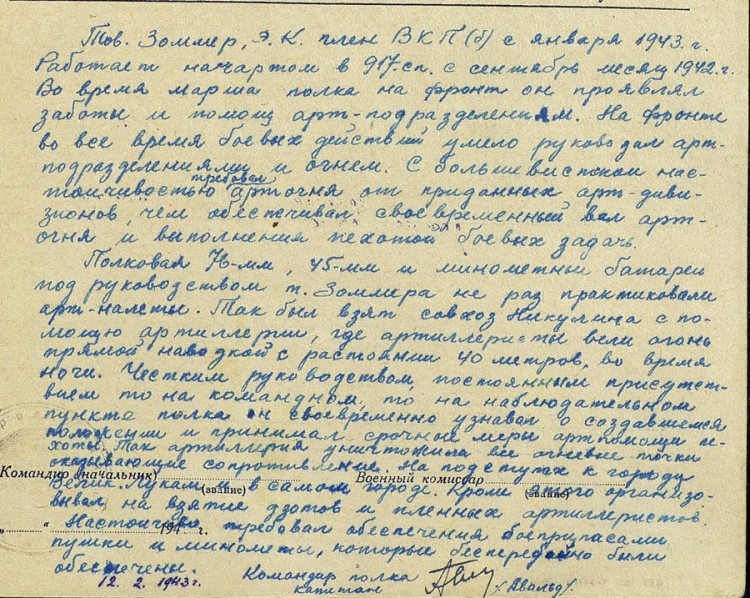 Тов. Зоммер, Э. К. член ВКП(б) с января 1943. г.
Работает начартом в 917. сп. с сентябрь месяц 1942. г.
Во время марша полка на фронт он проявлял
заботы и помощь арт-подразделениям. На фронте
во все время боевых действий умело руководил арт-
подразделениями и огнем. С большевистской нас-
тойчивостью требовал артогня от приданных арт-диви-
зионов, чем обеспечивал своевременный вал арт-
огня и выполнения пехотой боевых задачь.
Полковая 76-мм, 45-мм и минометные батареи
под руководством т. Зоммера не раз практиковали
арт-налеты. Так был взят совхоз Никулина с по-
мощью артиллерии, где артиллеристы вели огонь
прямой наводкой с растоянии 40 метров, во время
ночи. Честким руководством, постоянным присутст-
вием то на командном, то на наблюдательном
пункте полка он своевременно узнавал о создавшемся
положении и принимал срочные меры артпомощи пе-
хоты. Так артиллерия уничтожила все огневые точки
оказывающие сопротивление. На подступах к городу
Командир (начальник) Военный комиссар
Велик. Лукам и в самом городе. Кроме этого организо-
(звание) (звание)
вывал на взятие дзотов и пленных артиллеристов.
„ “ 194 г.
Настойчиво требовал обеспечения боеприпасами
пушки и минометы, которые бесперебойно были
обеспечены.
12. 2. 1943 г. Командир полка
капитан (Авальд).